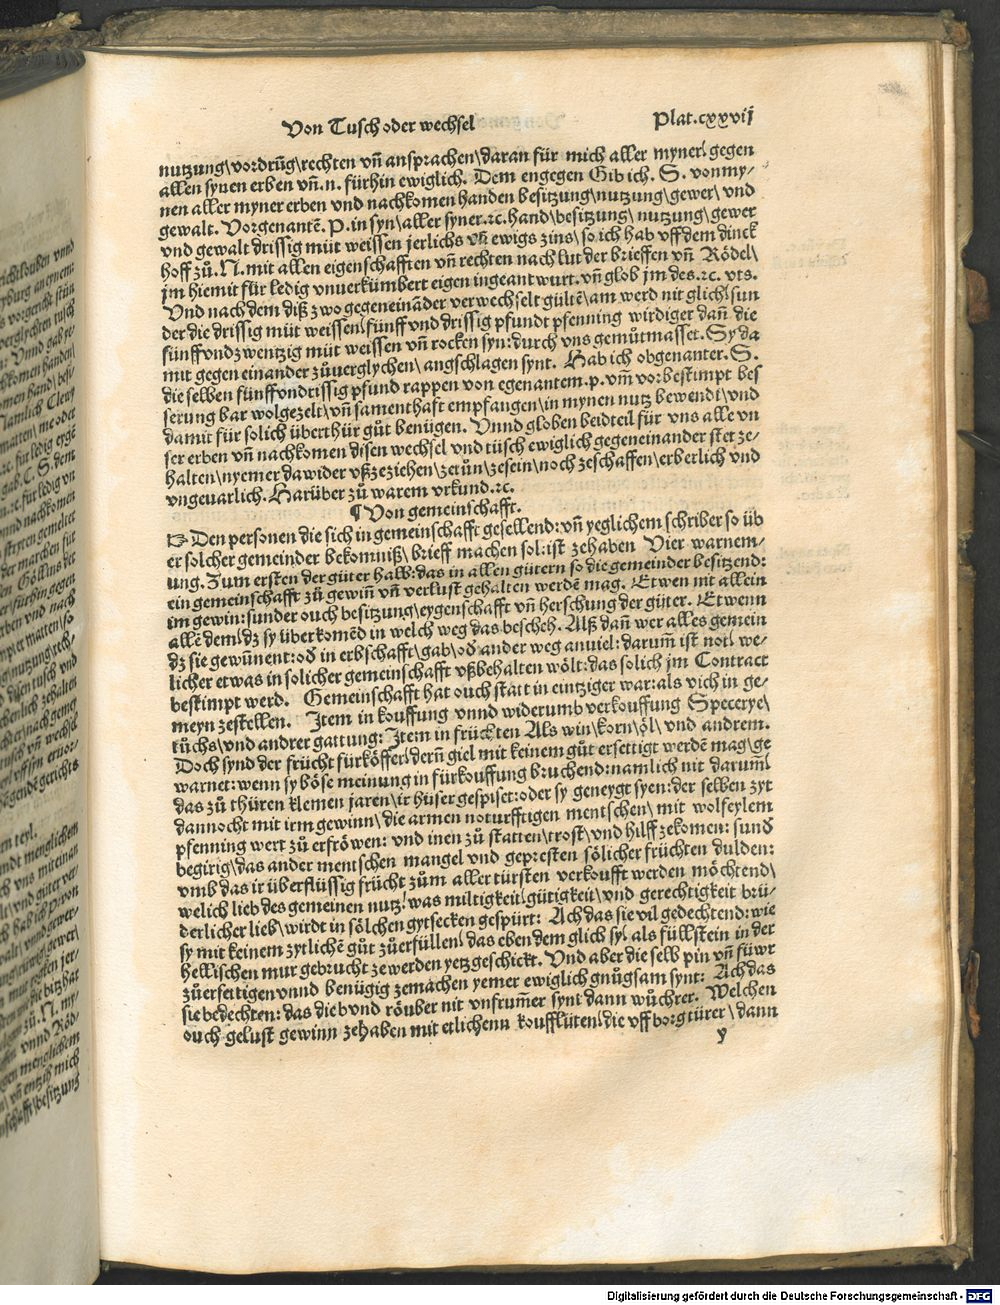 Von Tusch oder wechsel Plat.cxxvij
nutzung\vordrūg\rechten vn̄ ansprachen\daran für mich aller myner\ gegen
allen synen erben vn̄.n. fürhin ewiglich. Dem engegen Gib ich. S. von my⸗
nen aller myner erben vnd nachkomen handen besitzung\nutzung\gewer\ vnd
gewalt. Vorgenantē. P. in syn\aller syner.ꝛc.hand\besitzung\ nutzung\gewer
vnd gewalt drissig müt weissen jerlichs vn̄ ewigs zins\ so ich hab vff dem dinck
hoff zů. N. mit allen eigenschafften vn̄ rechten nach lut der brieffen vn̄ Rödel\
jm hiemit für ledig vnuerkümbert eigen ingeantwurt. vn̄ glob jm des.ꝛc. vts.
Vnd nach dem diß zwo gegeneināder verwechselt gültē\am werd nit glich\sun
der die drissig müt weissen\ fünff vnd drissig pfundt pfenning wirdiger dañ die
fünff vnd zwentzig müt weissen vn̄ rocken syn: durch vns gemůtmasset. Sy da
mit gegen einander zůuerglychen\ angschlagen synt. Hab ich obgenanter. S.
die selben fünff vndrissig pfund rappen von egenantem.p. vm̄ vorbestimpt bes
serung bar wolgezelt\vn̄ samenthaft empfangen\in mynen nutz bewendt\vnd
damit für solich überthür gůt benügen. Vnnd globen beidteil für vns alle vn
ser erben vn̄ nachkomen disen wechsel vnd tüsch ewiglich gegeneinander stet ze⸗
halten\nyemer da wider vßzeziehen\zetůn\zesein\noch zeschaffen\erberlich vnd
vngeuarlich. Harüber zů warem vrkund.ꝛc.
¶ Von gemeinschafft.
☞ Den personen die sich in gemeinschafft gesellend: vn̄ yeglichem schriber so üb
er solcher gemeinder bekomniß\ brieff machen sol: ist zehaben Vier warnem⸗
ung. Zum ersten der güter halb: das in allen gütern so die gemeinder besitzend:
ein gemeinschafft zů gewin̄ vn̄ verlust gehalten werdē mag. Etwen nit allein
im gewin: sunder ouch besitzung\eygenschafft vn̄ herschung der güter. Etwenn
allē dem\dz sy überkomēd in welch weg das bescheh. Alß dan̄ wer alles gemein
dz sie gewūnent: od̄ in erbschafft\gab\od̄ ander weg anuiel: darum̄ ist not\ we⸗
licher etwas in solicher gemeinschafft vßbehalten wölt: das solich jm Contract
bestimpt werd. Gemeinschafft hat ouch statt in eintziger war: als vich in ge⸗
meyn zestellen. Item in kouffung vnnd widerumb verkouffung Specerye\
tůchs\vnd andrer gattung: Item in früchten Als win\korn\öl\ vnd andrem.
Doch synd der frücht fürköffer\ dern̄ giel mit keinem gůt ersettigt werdē mag\ge
warnet: wenn sy böse meinung in fürkouffung bruchend: namlich nit darum̄
das zů thüren klemen jaren\ir hüser gespiset: oder sy geneygt syen: der selben zyt
dannocht mit irm gewinn\die armen noturfftigen mentschen\ mit wolfeylem
pfenning wert zu erfröwen: vnd inen zů statten\trost\vnd hilff zekomen: sund̄
begirig\das ander mentschen mangel vnd gepresten sölicher früchten dulden:
vmb das ir überflüssig frücht zům aller türsten verkoufft werden möchtend\
welich lieb des gemeinen nutz\ was miltigkeit\gütigkeit\vnd gerechtigkeit brü⸗
derlicher lieb\ wirdt in sölchen gytsecken gespürt: Ach das sie vil gedechtend: wie
sy mit keinem zytlichē gůt zůerfüllen\ das eben dem glich sy\ als füllstein in der
hellischen mur gebrucht zewerden yetz geschickt. Vnd aber die selb pin vn̄ füwr
zůersettigen vnnd benügig zemachen yemer ewiglich gnůgsam synt: Ach das
sie bedechten: das dieb vnd röuber nit vnfrum̄er synt dann wůchrer. Welchen
ouch gelust gewinn zehaben mit etlichenn koufflüten\die vff borg türer\ dann
y
Digitalisierung gefördert durch die Deutsche Forschungsgemeinschaft - DFG